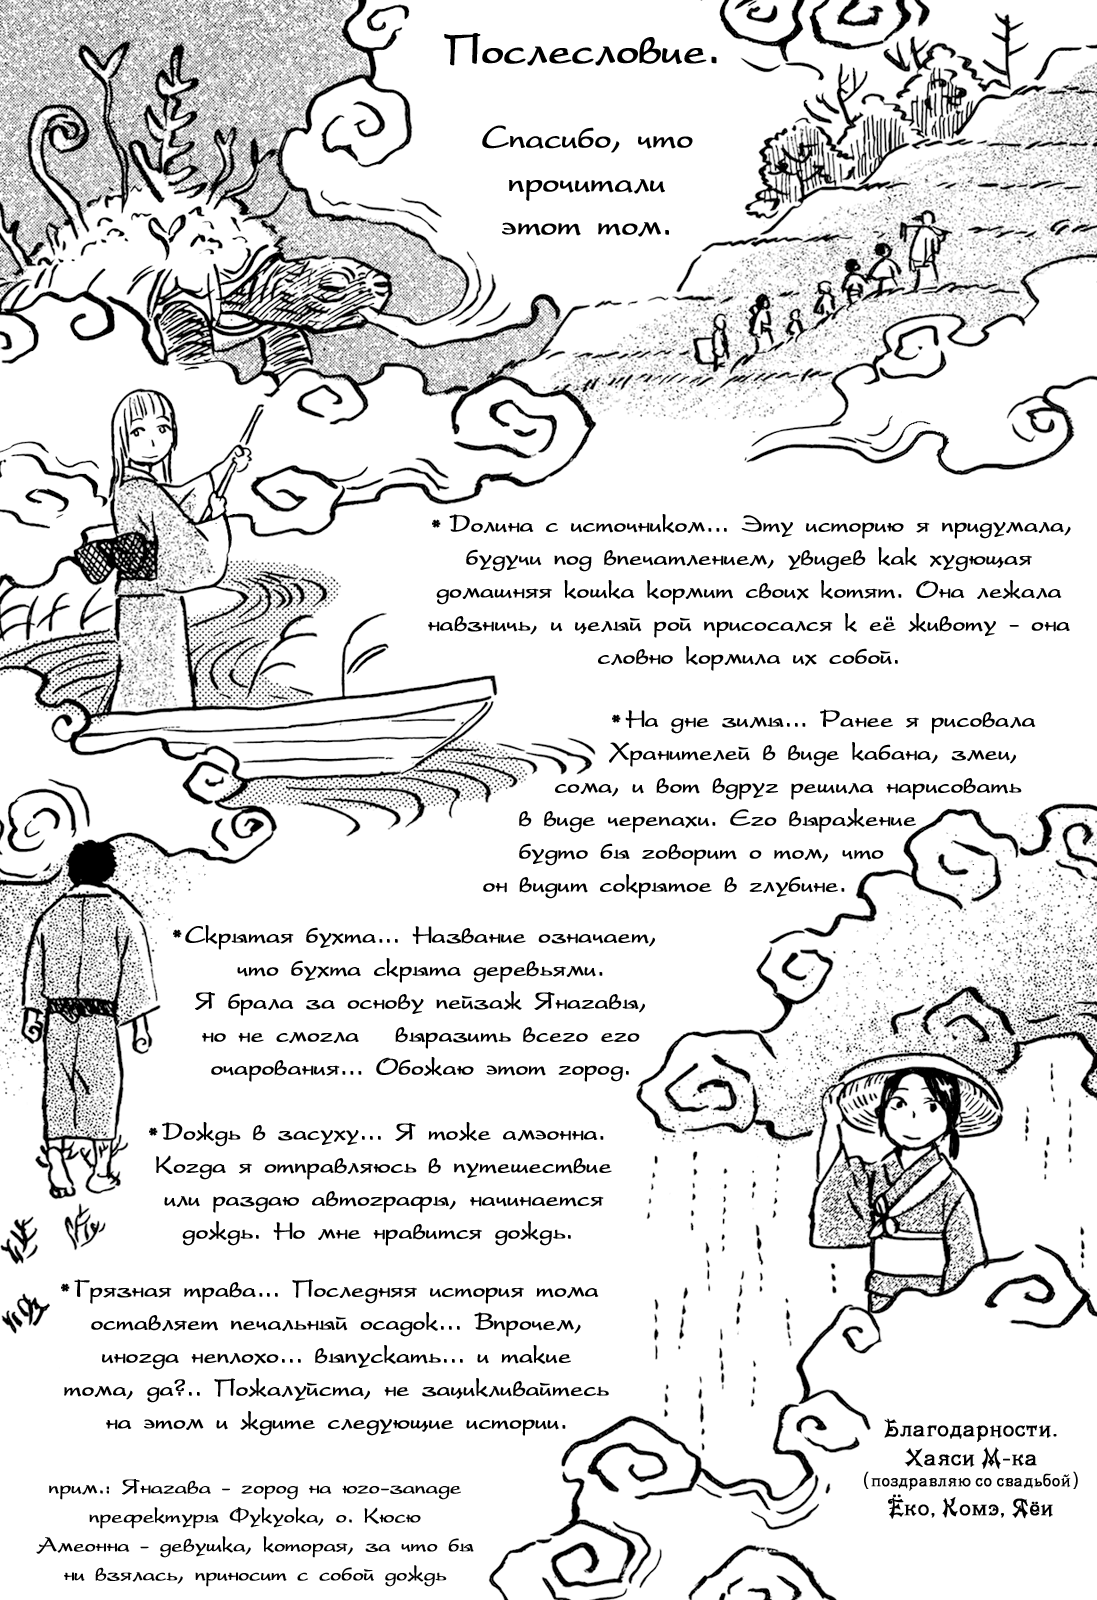 Послесловие.
Спасибо, что
прочитали
этот том.
* Долина с источником... Эту историю я придумала,
будучи под впечатлением, увидев как худющая
домашняя кошка кормит своих котят. Она лежала
навзничь, и целый рой присосался к её животу - она
словно кормила их собой.
*На дне зимы... Ранее я рисовала
Хранителей в виде кабана, змеи,
сома, и вот вдруг решила нарисовать
в виде черепахи. Его выражение
будто бы говорит о том, что
он видит сокрытое в глубине.
*Скрытая бухта... Название означает,
что бухта скрыта деревьями.
Я брала за основу пейзаж Янагавы,
но не смогла выразить всего его
очарования... Обожаю этот город.
*Дождь в засуху... Я тоже амэонна.
Когда я отправляюсь в путешествие
или раздаю автографы, начинается
дождь. Но мне нравится дождь.
*Грязная трава... Последняя история тома
оставляет печальный осадок... Впрочем,
иногда неплохо... выпускать... и такие
тома, да?.. Пожалуйста, не зацикливайтесь
на этом и ждите следующие истории.
прим.: Янагава - город на юго-западе
префектуры Фукуока, о. Кюсю
Амеонна - девушка, которая, за что бы
ни взялась, приносит с собой дождь
Благодарности.
Хаяси М-ка
(поздравляю со свадьбой)
Ёко, Комэ, Яёи